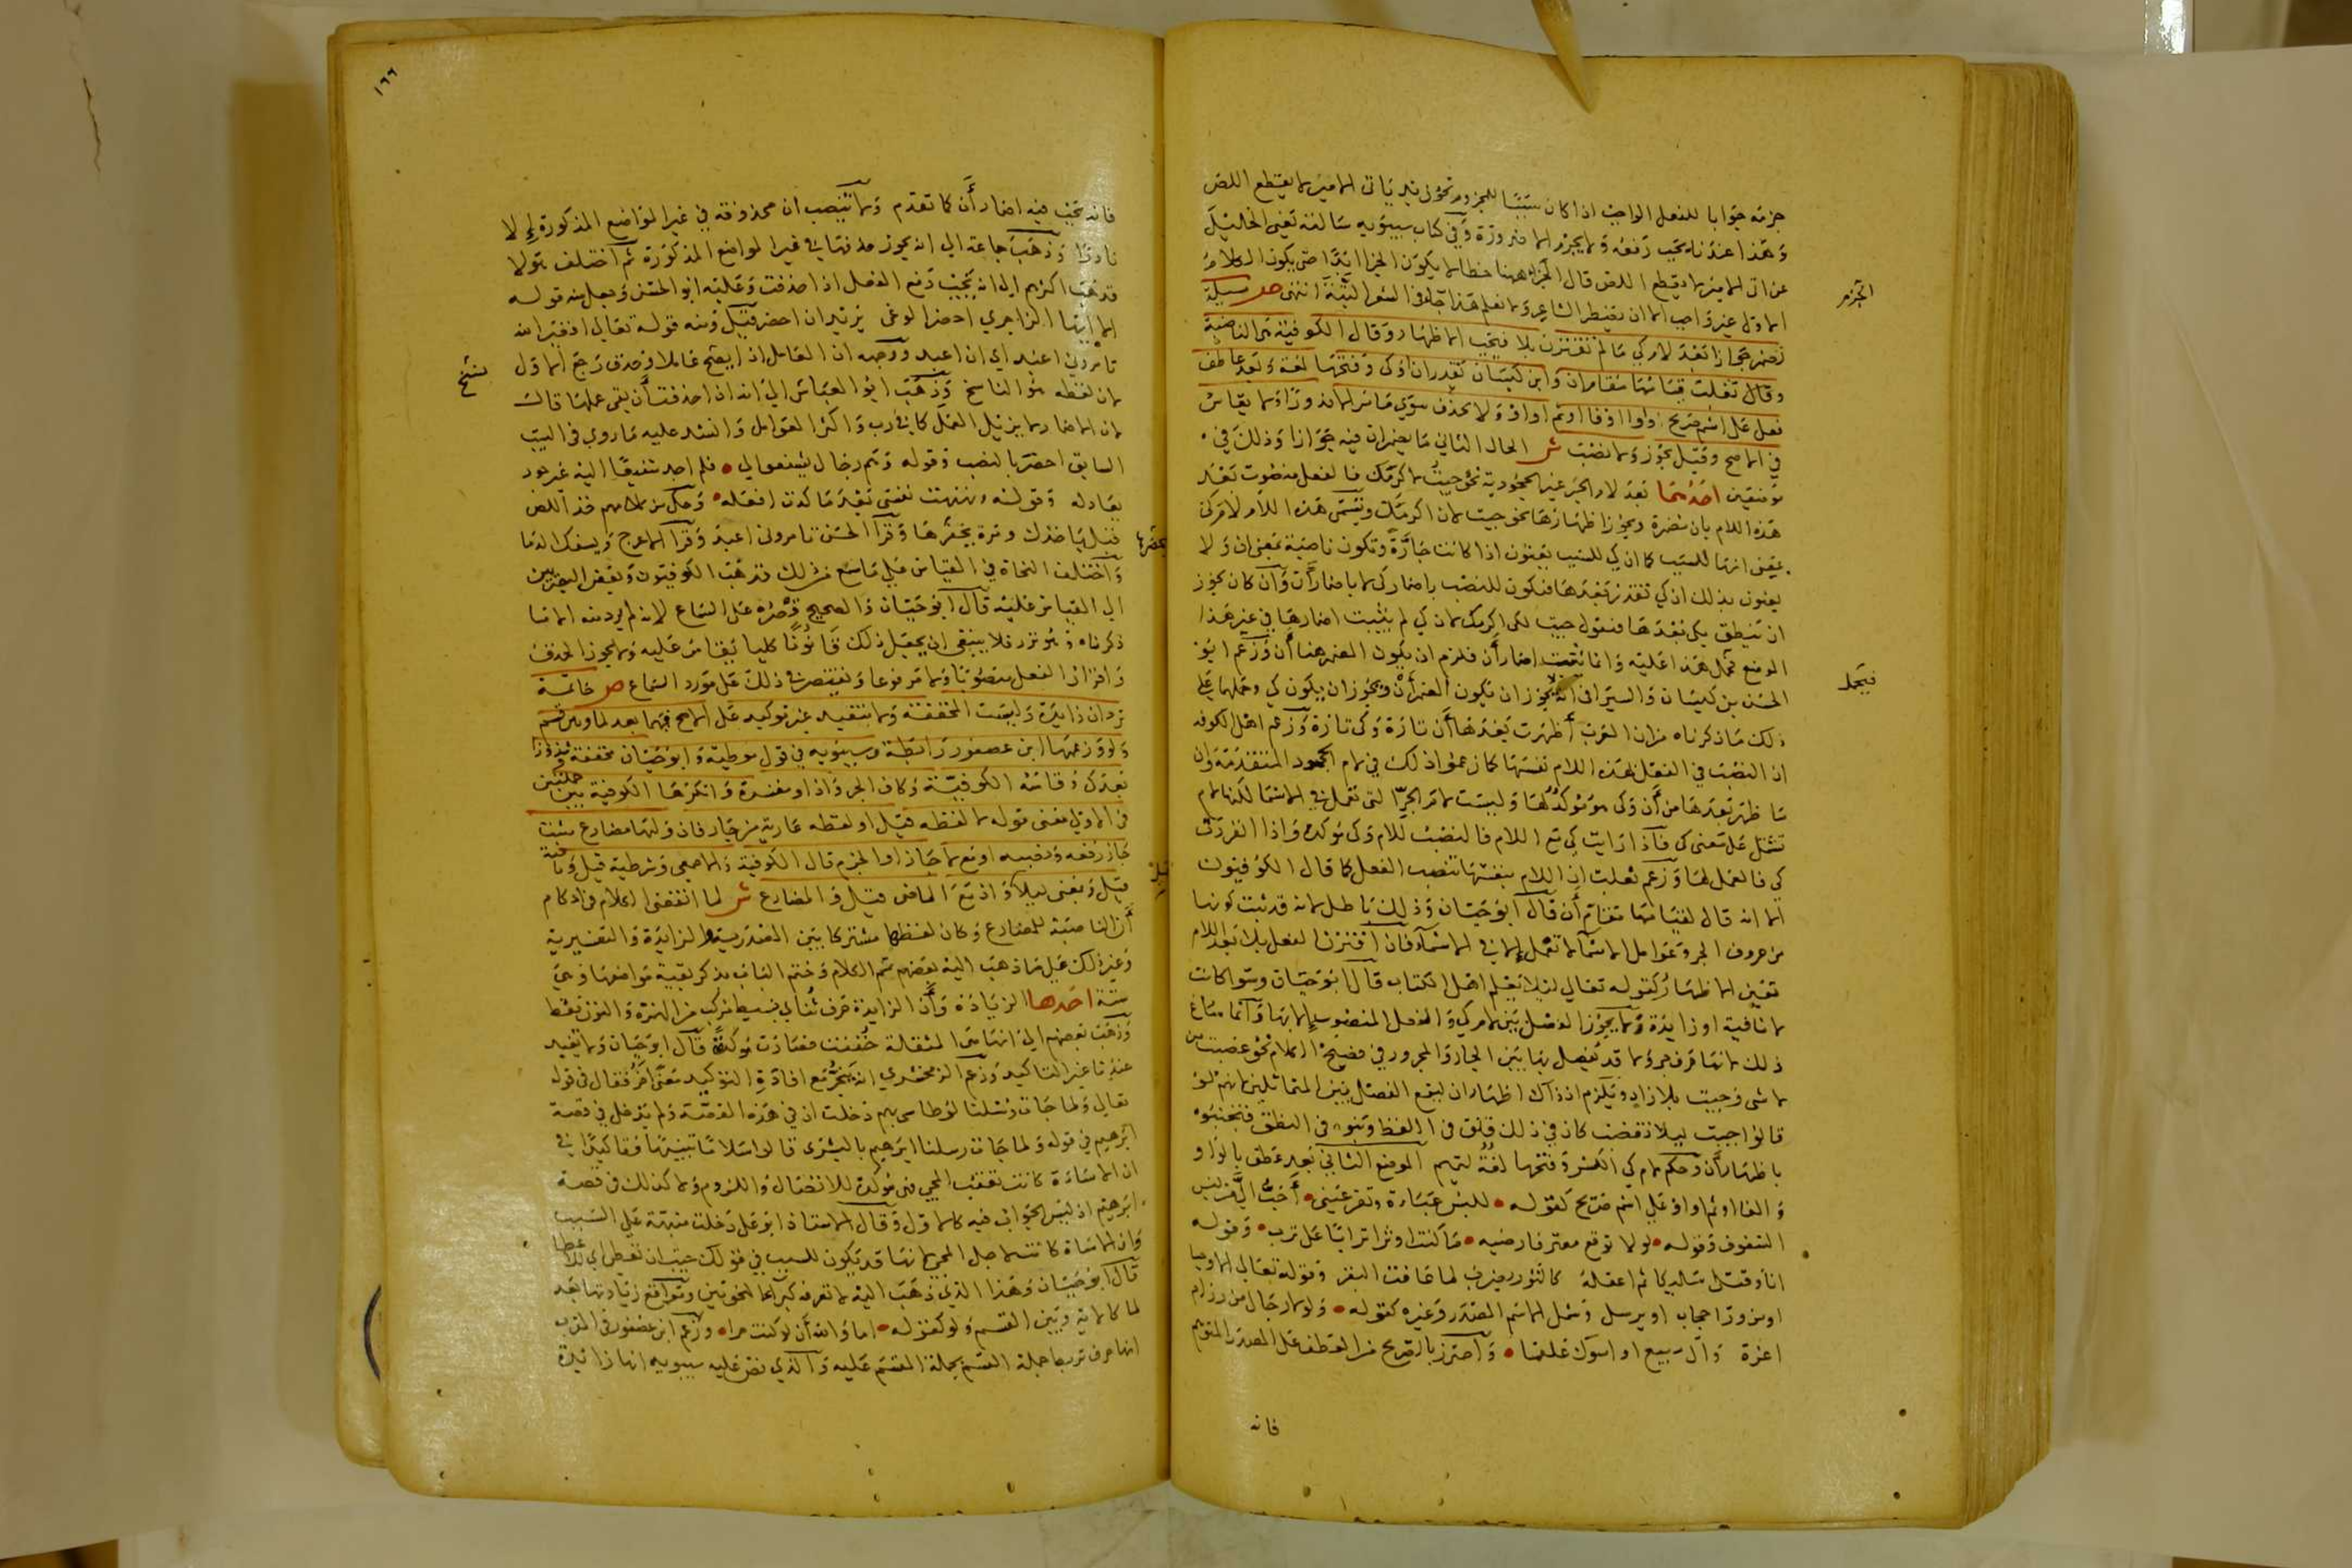 جزمه جوابا للفعل الواجب اذا كان سببا للمجزوم نحو زيد ياتى الامير لا يقطع اللص
وهذا عندنا يجب رفعه ولا يجزم الا ضرورة وفي كتاب سيبويه سالته يعني الخليل
عن اتى الامير لا يقطع اللص قال الجزاء ههنا خطا لا يكون الجزا ابدا حتى يكون الكلام
الجزم
الاول غير واجب الا ان يضطر الشاعر ولا نعلم هذا جاء في الشعر البتة انتهى ص
تضمر جوازا بعد لام كي ما لم تقترن بلا فيجب الاظهار وقال الكوفية هي الناصبة
وقال ثعلب لقيامها مقام ان وابن كيسان تقدر ان او كي وفتحها لغة وبعد عاطف
فعل على اسم صريح واوا او فا او ثم او او ولا تحذف سوى ما مر الا ندورا ولا يقاس
في الاصح وقيل يجوز ولا نصب ش الحال الثاني ما يضمر ان فيه جوازا وذلك في
موضعين احدهما بعد لام الجر غير الجحودية نحو جيت لاكرمك فالفعل منصوب بعد
هذه اللام بان مضمرة ويجوز اظهارها نحو جيت لان اكرمك وتسمى هذه اللام لام كي
بمعنى انها للسبب كما ان كي للسبب يعنون اذا كانت جارة وتكون ناصبة بمعنى ان ولا
يعنون بذلك ان كي تقدر بعدها فتكون للنصب باضمار كي لا باضمار أن وان كان يجوز
ان تنطق بكي بعدها فتقول جيت لكي اكرمك لان كي لم يثبت اضمارها في غير هذا
الموضع فيحمل هذا عليه وانما يثبت اضمار أن فلزم ان يكون المضمر هنا أن وزعم ابو
فيحمل
الحسن بن كيسان والسيرافى انه يجوز ان يكون المضمر أن ويجوز ان يكون كي وحملها على
ذلك ما ذكرناه من ان العرب أظهرت بعدها أن تارة وكي تارة وزعم اهل الكوفه
ان النصب في الفعل بهذه اللام نفسها كما زعموا ذلك في لام الجحود المتقدمة وان
ما ظهر بعدها من أن وكي موكد لها وليست لام الجر التى تعمل في الاسما لكنها لام
تشتمل على معنى كي فاذا رايت كي مع اللام فالنصب للام وكي موكدة واذا انفردت
كي فالعمل لها وزعم ثعلب ان اللام بنفسها تنصب الفعل كما قال الكوفيون
الا انه قال لقيامها مقام أن قال ابو حيان وذلك باطل لانه قد ثبت كونها
من حروف الجر وعوامل الاسما لا تعمل الا في الاسماء فان اقترن الفعل بلا بعد اللام
تعين الاظهار كقوله تعالى ليلا يعلم اهل الكتاب قال ابو حيان وسوا كانت
لا نافية او زايدة ولا يجوز الفصل بين لام كي والفعل المنصوب الا بها وانما ساغ
ذلك لانها حرف جر ولا قد يفصل بها بين الجار والمجرور في فصيح الكلام نحو غضبت من
لا شى وجيت بلا زاد ويلزم اذ ذاك اظهار ان ليقع الفصل بين المتماثلين لانهم لو
قالوا جيت ليلا تغضب كان في ذلك قلق في اللفظ ونبو في النطق فتجنبوه
باظهار أن وحكم لام كي الكسر وفتحها لغة تميم الموضع الثاني بعد عطف بالواو
والفا او ثم او او على اسم صريح كقوله • للبس عباءة وتقر عيني • أحب الي من لبس
الشفوف وقوله • لولا توقع معتر فارضيه • ما كنت اوثر اترابا على ترب • وقوله
انى وقتلى سليكا ثم اعقله كالثور يضرب لما عافت البقر وقوله تعالى الا وحيا
او من وراء حجاب او يرسل وشمل الاسم المصدر وغيره كقوله • ولولا رجال من رزام
اعزة وآل سبيع او اسوءك علقما • واحترز بالصريح من العطف على المصدر المتوهم
فانه
١٦٦
فانه يجب فيه اضمار أن كما تقدم ولا تنصب ان محذوفة في غير المواضع المذكورة الا
نادرا وذهب جماعة الى انه يجوز حذفها في غير المواضع المذكورة ثم اختلف هولا
فذهب اكثرهم الى انه يجب رفع الفعل اذا حذفت وعليه ابو الحسن وجعل منه قوله
الا ايها الزاجري احضر الوغى يريد ان احضر قيل ومنه قوله تعالى افغير الله
تامروني اعبد اي ان اعبد ووجهه ان العامل اذا نسخ عاملا وحذف رجع الاول
ينسخ
لان لفظه هو الناسخ وذهب ابو العباس الى انه ان حذفت أن بقي عملها قال
لان الاضمار لا يزيل العمل كما في رب واكثر العوامل وانشد عليه ما روي في البيت
السابق احضر بالنصب وقوله وهم رجال يشفعوا لي • فلم اجد شفيعا اليه غير جود
يعادله وقوله ونهنهت نفسي بعد ما كدت افعله • وحكى من كلامهم خذ اللص
قبل ياخذك ومره يحفرها وقرا الحسن تامروني اعبد وقرا الاعرج ويسفك الدما
يحفرها
واختلف النحاة في القياس على ما سمع من ذلك فذهب الكوفيون وبعض البصريين
الى القياس عليه قال ابو حيان والصحيح قصره على السماع لانه لم يرد منه الا ما
ذكرناه وهو نزر فلا ينبغي ان يجعل ذلك قانونا كليا يقاس عليه ولا يجوز الحذف
واقرار الفعل منصوبا ولا مرفوعا ويقتصر في ذلك على مورد السماع ص خاتمة
ترد ان زايدة وليست المخففة ولا تفيد غير توكيد على الاصح فيهما بعد لما وبين قسم
ولو وزعمها ابن عصفور رابطة وسيبويه في قول موطية وابو حيان مخففة وشذوذا
بعد كي وقاسه الكوفية وكاف الجر واذا ومفسرة وانكرها الكوفية بين جملتين
في الاولى معنى قوله لا لفظه قيل او لفظه عارية من جار فان وليها مضارع مثبت
جاز رفعه ونصبه او مع لا جاز او الجزم قال الكوفية والاصمعي وشرطية قيل ونافية
قيل
قيل وبمعنى ليلا واذ مع الماضى قيل والمضارع ش لما انقضى الكلام في احكام
أن الناصبة للمضارع وكان لفظها مشتركا بين المصدرية والزايدة والتفسيرية
وغير ذلك على ما ذهب اليه بعضهم تمم الكلام وختم الباب بذكر بقية مواضعها وهي
ستة احدها الزيادة وأن الزايدة حرف ثنائي بسيط مركب من الهمزة والنون فقط
وذهب بعضهم الى انها هي المثقلة خففت فصارت موكدة قال ابو حيان ولا تفيد
عندنا غير التاكيد وزعم الزمخشري انه ينجر مع افادة التوكيد معنى آخر فقال في قوله
تعالى ولما ان جات رسلنا لوطا سى بهم دخلت ان في هذه القصة ولم يدخل في قصة
ابرهيم في قوله ولما جات رسلنا ابرهيم بالبشرى قالوا سلاما تنبيها وتاكيدا في
ان الاساءة كانت تعقب المجي فهي موكدة للاتصال واللزوم ولا كذلك في قصة
ابرهيم اذ ليس الجواب فيه كالاول وقال الاستاذ ابو علي دخلت منبهة على السبب
وان الاساءة كانت لاجل المجي لانها قد تكون للسبب في قولك جيت ان تعطي اي للعطا
قال ابو حيان وهذا الذي ذهب اليه لا تعرفه كبرآء النحويين ومواقع زيادتها بعد
لما كالاية وبين القسم ولو كقوله • اما والله أن لو كنت حرا • وزعم ابن عصفور في المقرب
انها حرف تربط جملة القسم بجملة المقسم عليه والذي نص عليه سيبويه انها زايدة